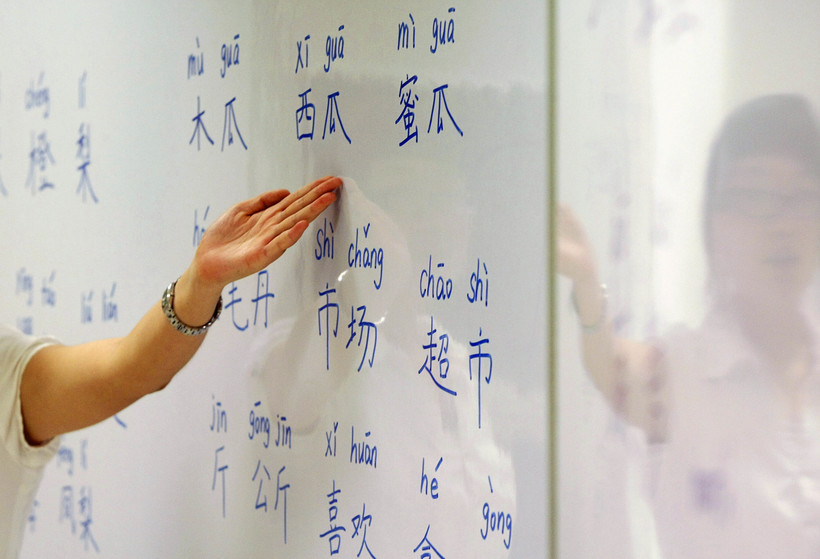 chéng lí mù guā xī guā mì guā
橙 梨 木瓜 西瓜 蜜瓜
liú lián shì chǎng chāo shì
毛丹 市场 超市
jīn gōng jīn xǐ huān hé gòng
梨 斤 公斤 喜欢